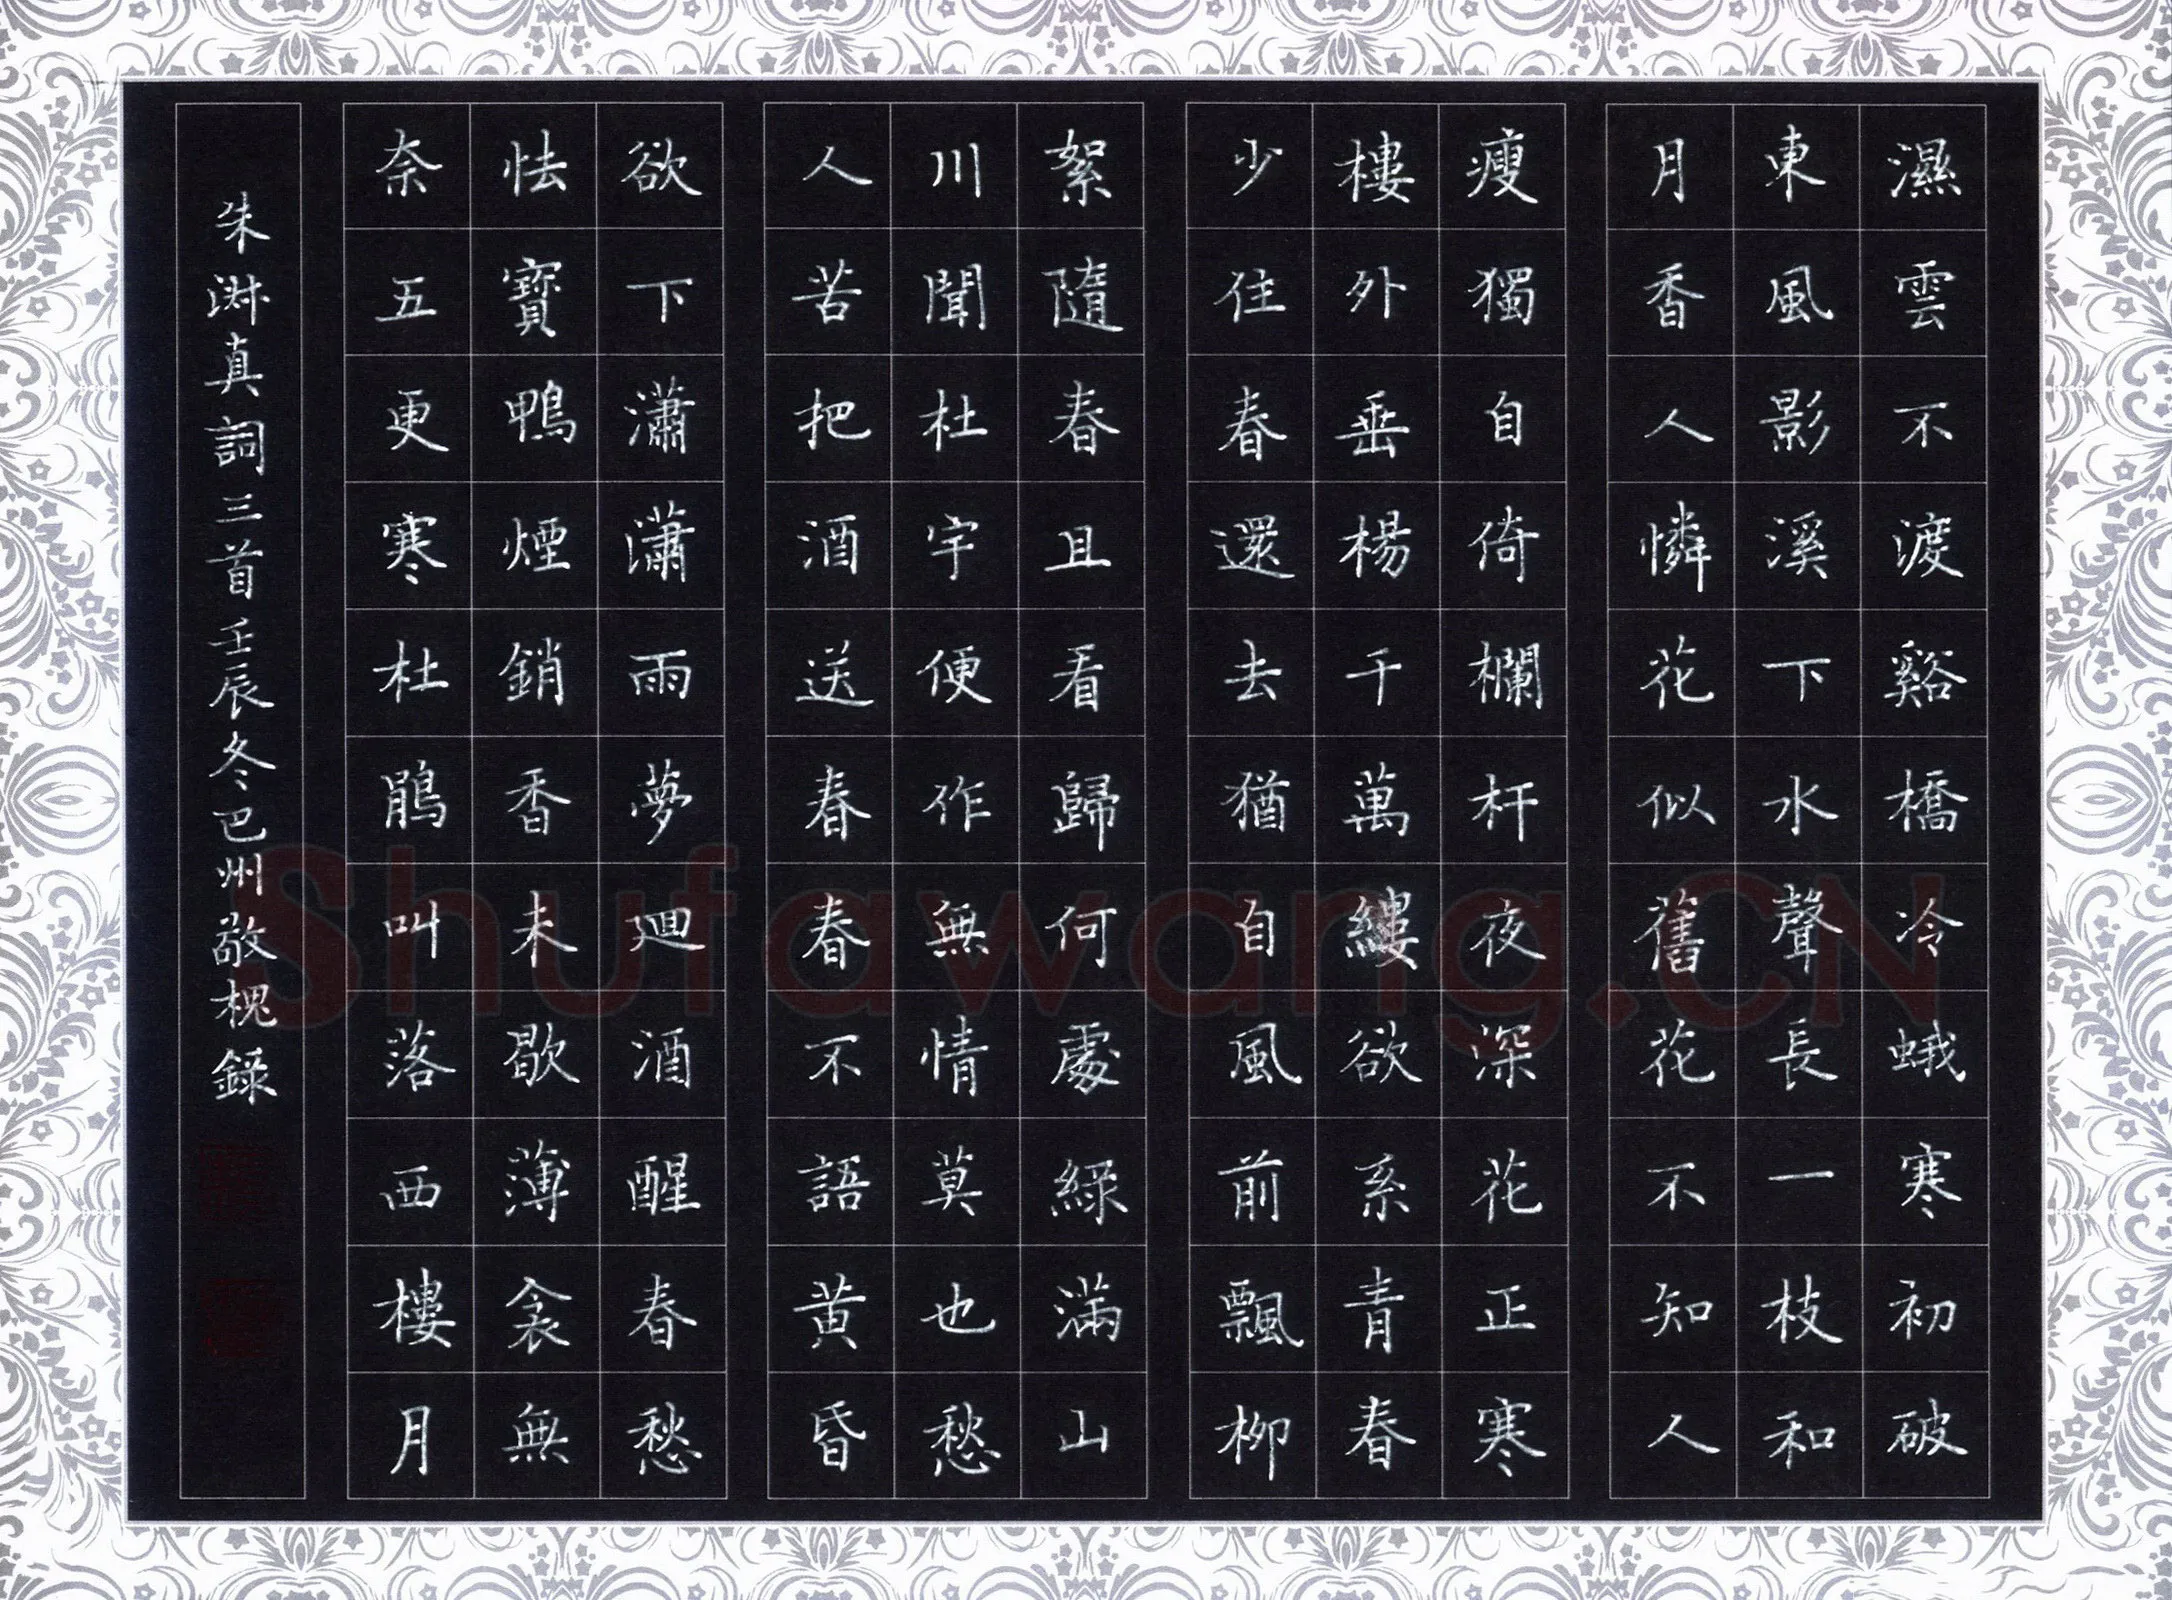 濕雲不渡谿橋冷蛾寒初破
東風影溪下水聲長一枝和
月香人憐花似舊花不知人
瘦獨自倚欄杆夜深花正寒
樓外垂楊千萬縷欲系青春
少住春還去猶自風前飄柳
絮隨春且看歸何處綠滿山
川聞杜宇便作無情莫也愁
人苦把酒送春春不語黃昏
欲下瀟瀟雨夢迴酒醒春愁
怯寶鴨煙銷香未歇薄衾無
奈五更寒杜鵑叫落西樓月
朱淑真詞三首壬辰冬巴州敬槐錄
Shufawang.CN